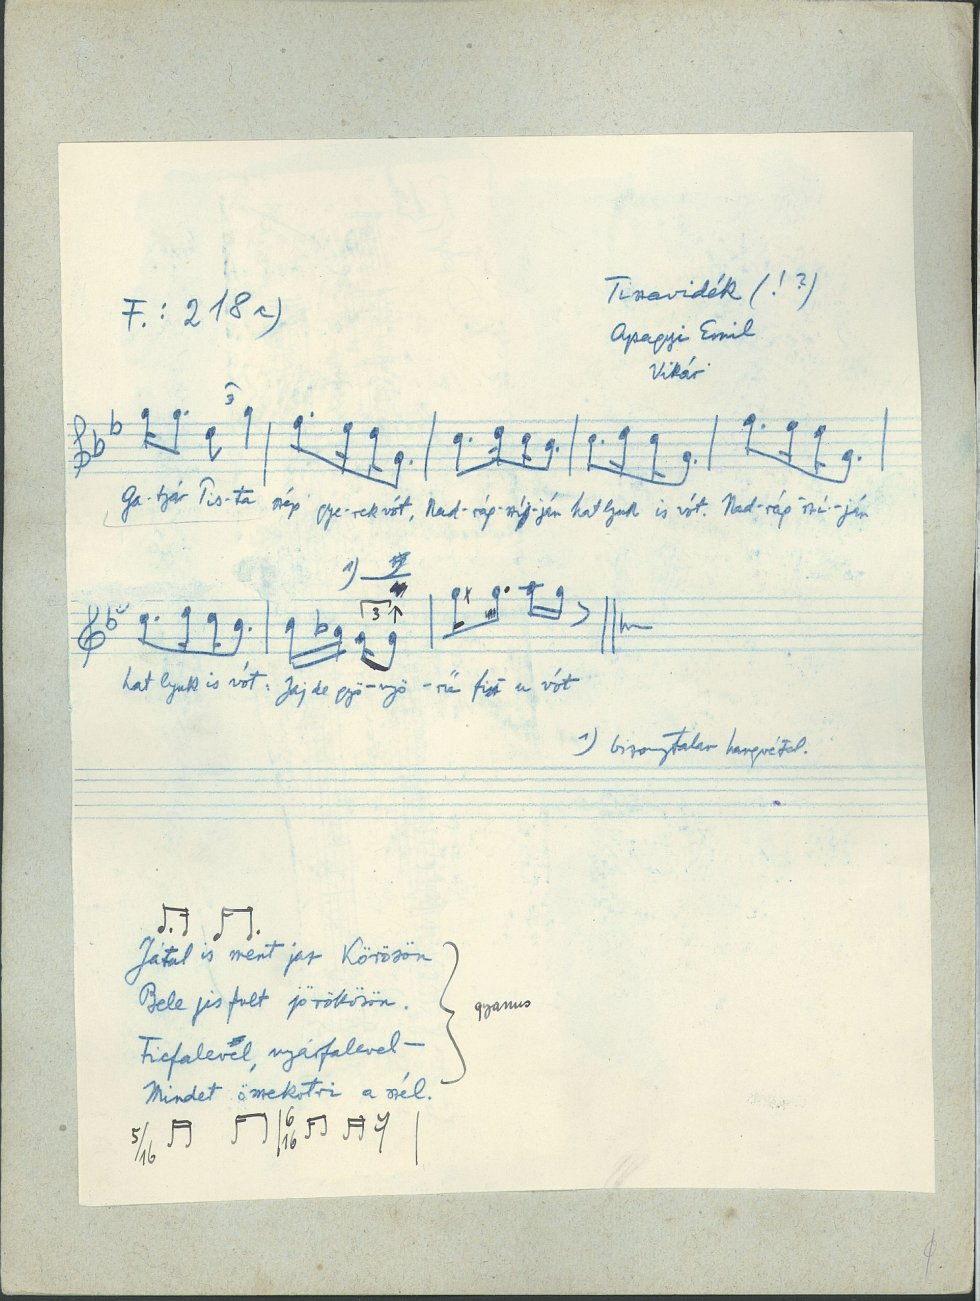 F.: 218 a)
Tiszavidék (!?)
Apagyi Emil
Vikár
3
Ga-tyár Pis-ta szép gye-rek vót, Nad-rág-szíj-ján hat lyuk is vót. Nad-rág szí-ján
1)
3
hat lyuk is vót. Jaj de gyö-nyö-rű fi u vót
1) bizonytalan hangvétel.
Játal is ment jaz Körösön
Bele jis fult jörökösön.
Ficfalevél, nyárfalevel —
Mindet összekotri a szél.
gyanus
5/16 6/16